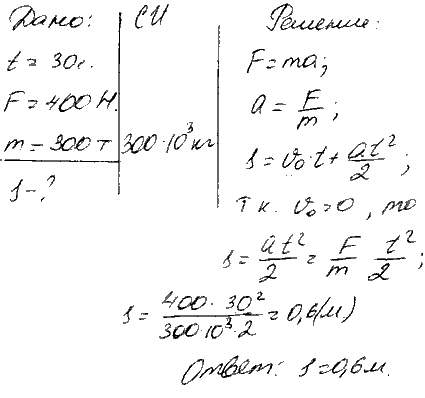 Дано:
t = 30с.
F = 400 Н.
m = 300 т
s - ?
СИ
300·10³ кг
Решение:
F = ma;
a = F/m;
s = v₀·t + at²/2;
т к. v₀ = 0, то
s = at²/2 = F/m t²/2;
s = 400·30²/300·10³·2 = 0,6(м)
Ответ: s = 0,6м.